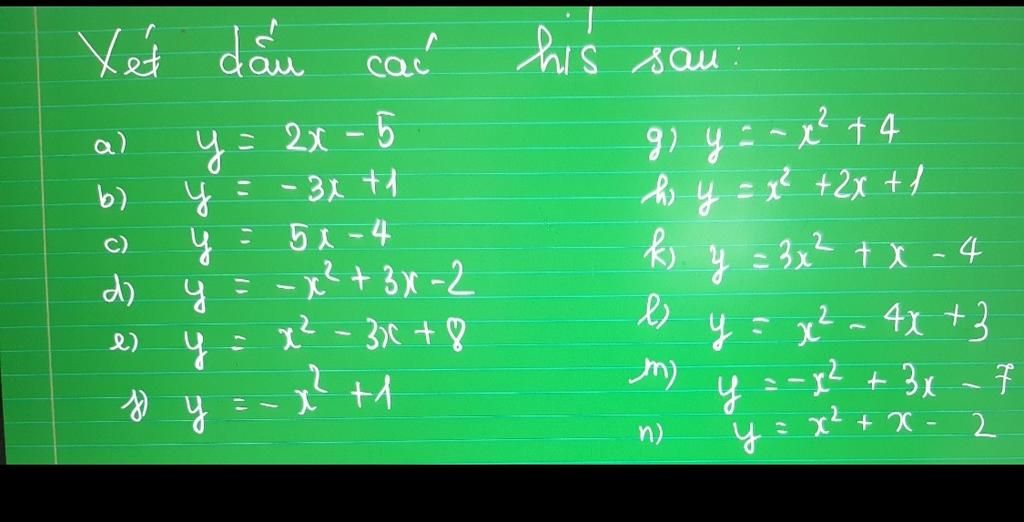 Xét dấu các h/s sau:
a) y = 2x - 5
b) y = -3x + 1
c) y = 5x - 4
d) y = -x² + 3x - 2
e) y = x² - 3x + 8
f) y = -x² + 1
g) y = -x² + 4
h) y = x² + 2x + 1
k) y = 3x² + x - 4
l) y = x² - 4x + 3
m) y = -x² + 3x - 7
n) y = x² + x - 2